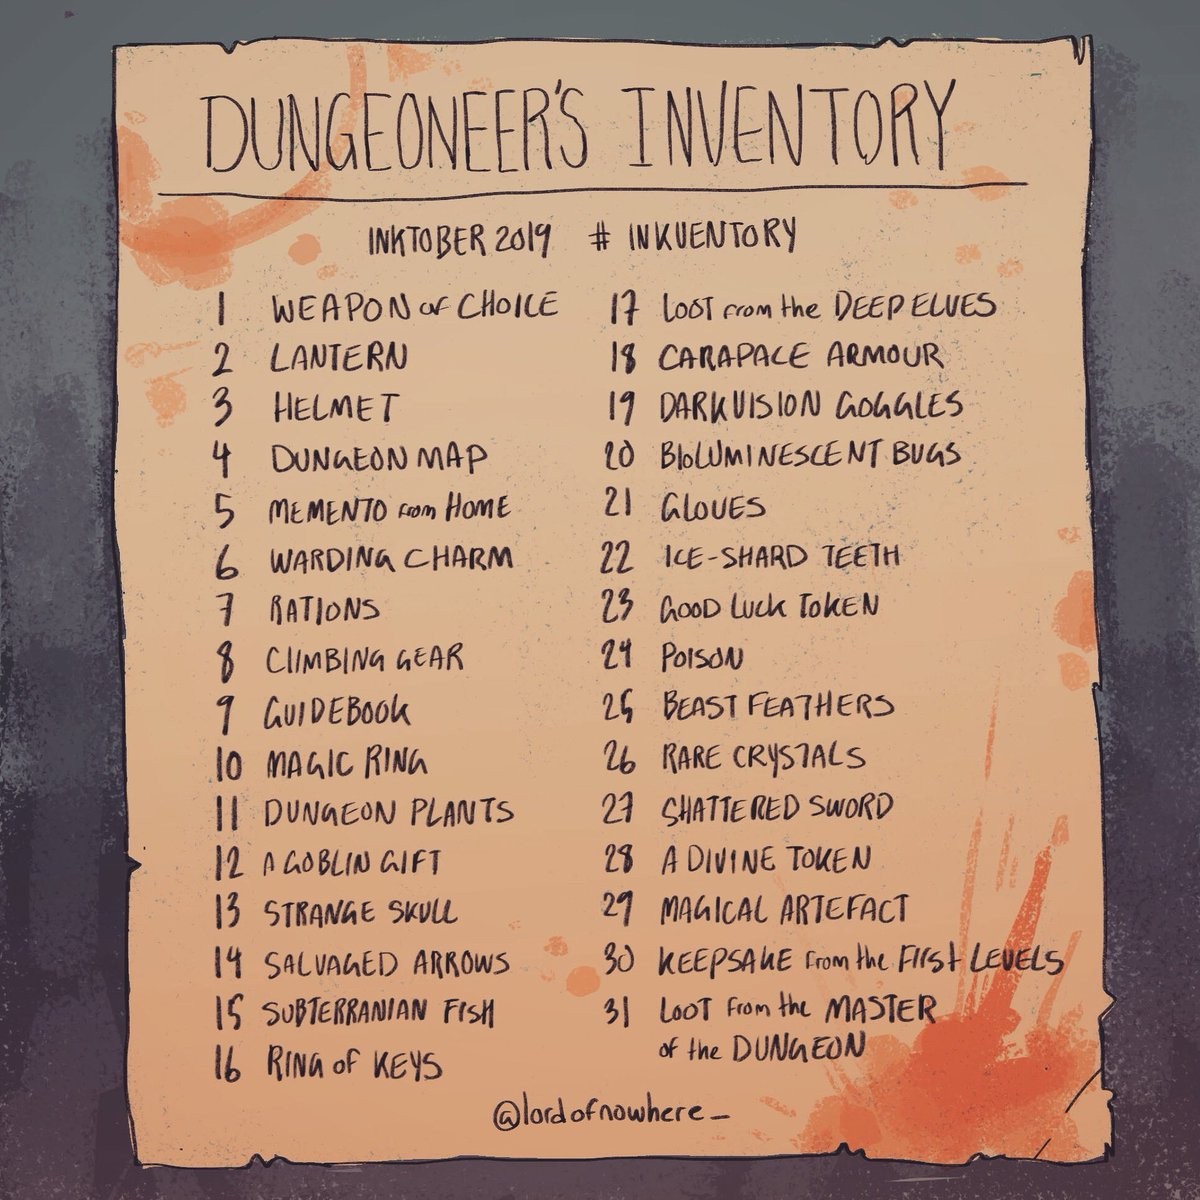 DUNGEONEER'S INVENTORY
INKTOBER 2019 # INKVENTORY
1 WEAPON OF CHOICE
2 LANTERN
3 HELMET
4 DUNGEON MAP
5 MEMENTO from HOME
6 WARDING CHARM
7 RATIONS
8 CLIMBING GEAR
9 GUIDEBOOK
10 MAGIC RING
11 DUNGEON PLANTS
12 A GOBLIN GIFT
13 STRANGE SKULL
14 SALVAGED ARROWS
15 SUBTERRANIAN FISH
16 RING of KEYS
17 LOOT from the DEEP ELVES
18 CARAPACE ARMOUR
19 DARKVISION GOGGLES
20 BIOLUMINESCENT BUGS
21 GLOVES
22 ICE-SHARD TEETH
23 GOOD LUCK TOKEN
24 POISON
25 BEAST FEATHERS
26 RARE CRYSTALS
27 SHATTERED SWORD
28 A DIVINE TOKEN
29 MAGICAL ARTEFACT
30 KEEPSAKE from the FIRST LEVELS
31 LOOT from the MASTER
of the DUNGEON
@lordofnowhere_